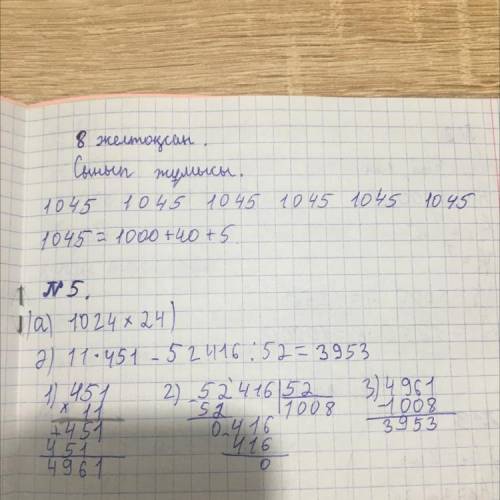 8 желтоқсан.
Сынып жұмысы.
1045 1045 1045 1045 1045 1045
1045 = 1000+40+5
№5.
а) 1024 × 24)
ә) 11·451 - 52416 : 52 = 3953
1) 451 2) 52416 | 52 3) 4961
× 11 52 1008 - 1008
+451 0-416 3953
451 416
4961 0